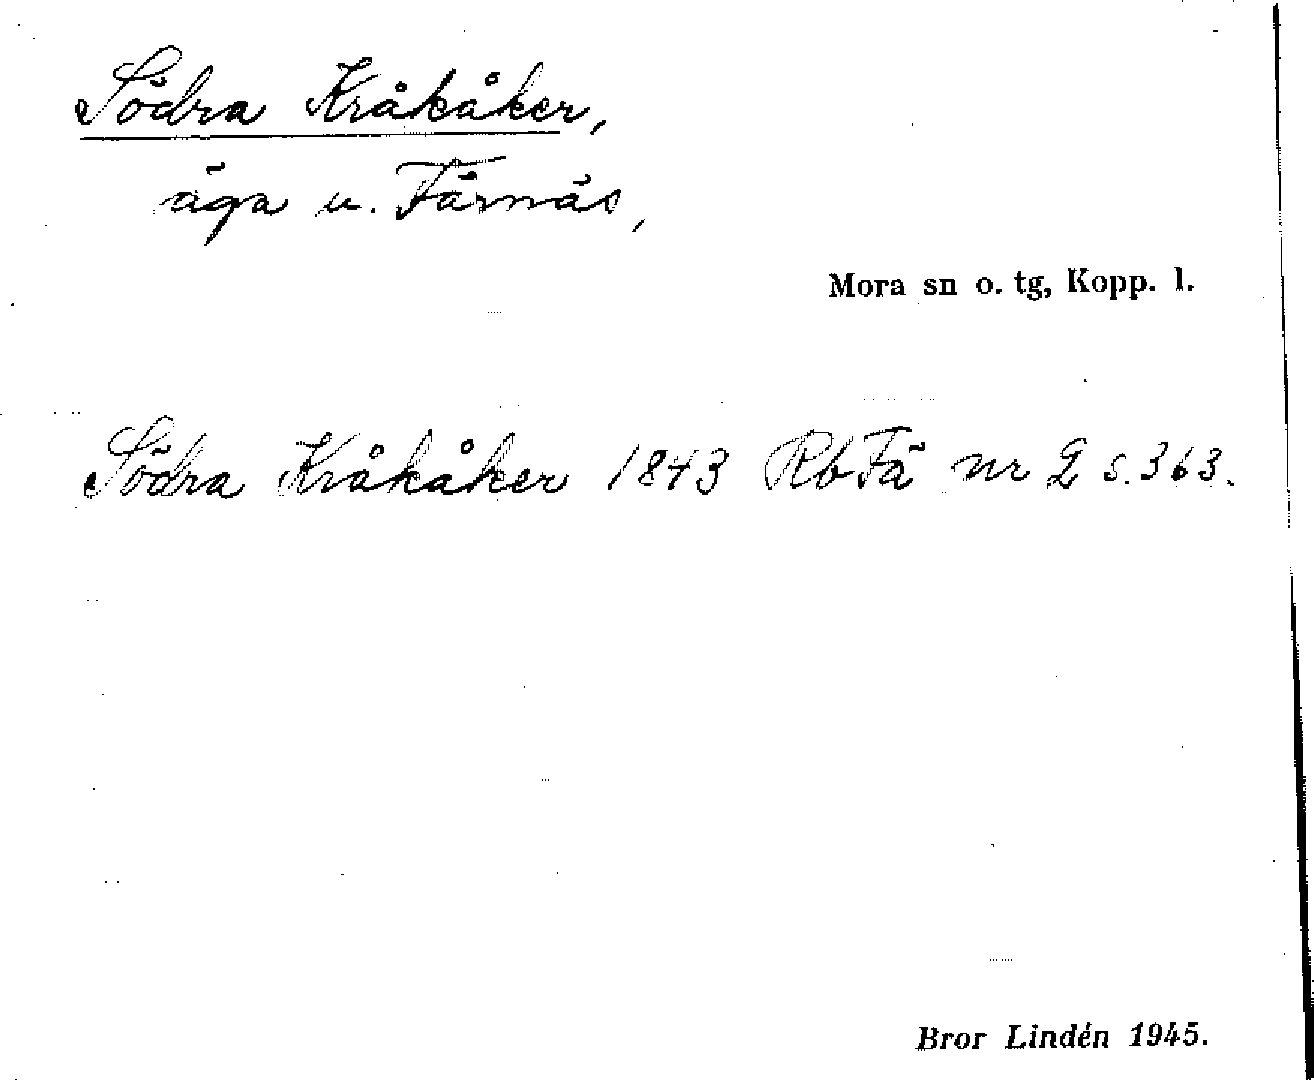 Södra Kråkåker,
äga u. Färnäs,
Mora sn o. tg, Kopp. l.
Södra Kråkåker 1843 RbFä nr 2 s. 363.
Bror Lindén 1945.